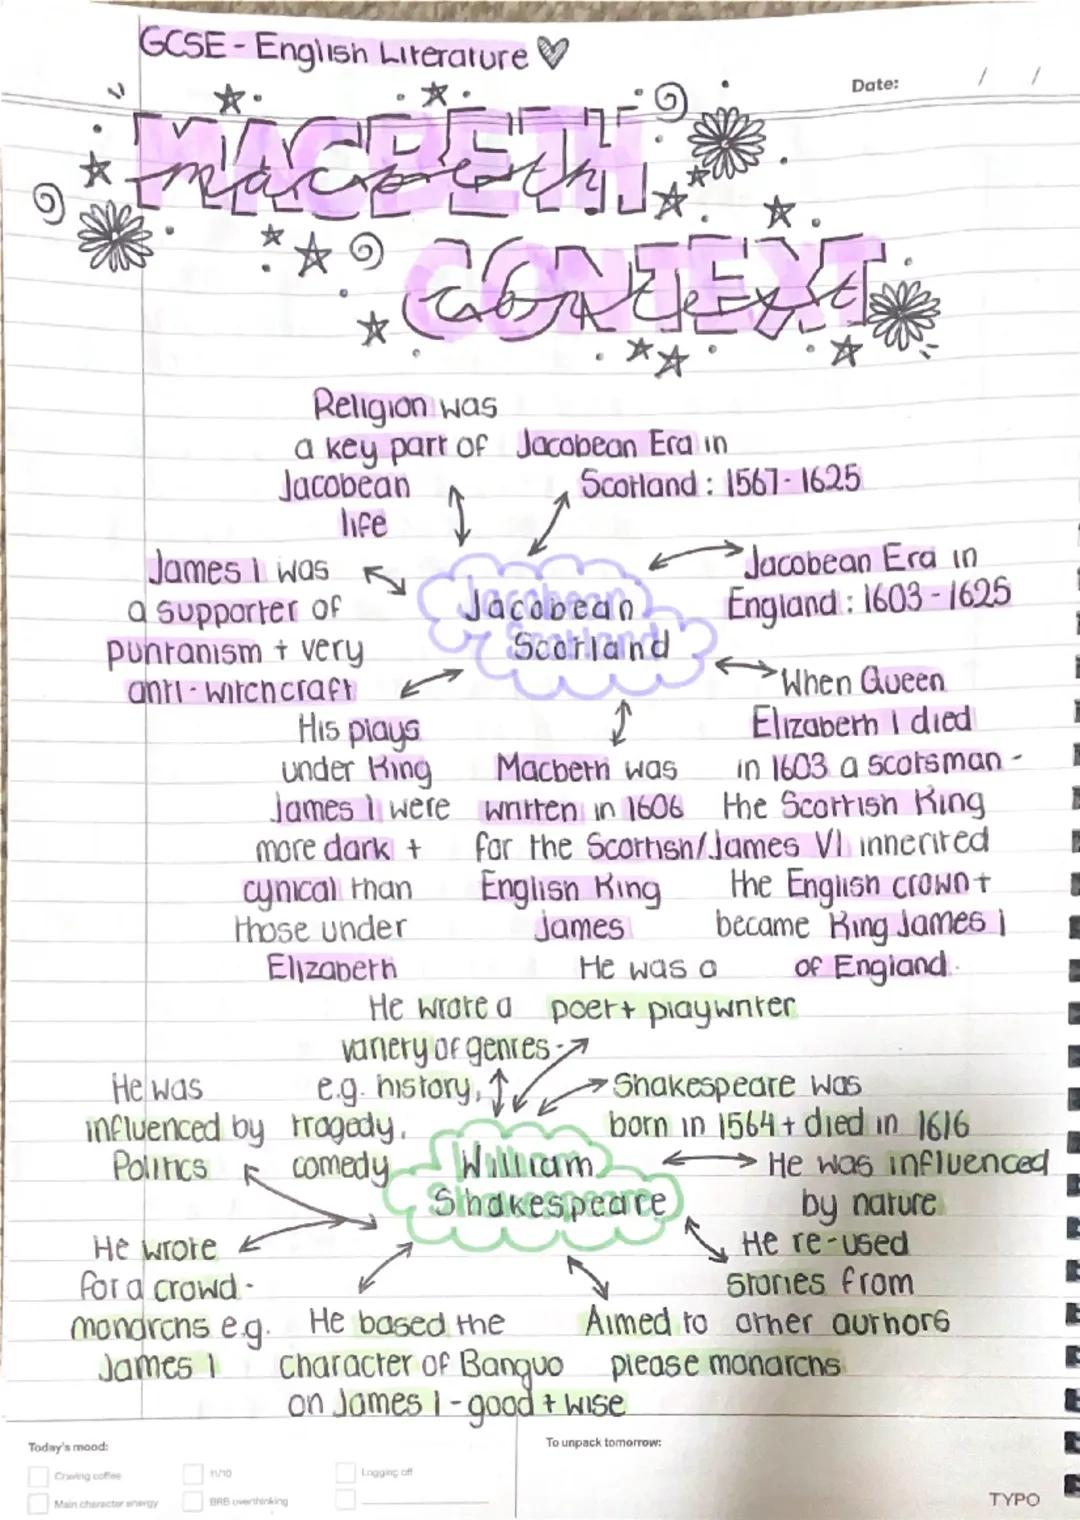 GCSE - English Literature
Date: / /
MACBETH
macbeth
CONTEXT
context
Religion was
a key part of
Jacobean
life
Jacobean Era in
Scotland : 1567 - 1625
James I was
a supporter of
puritanism + very
anti - witchcraft
Jacobean
Scotland
Jacobean Era in
England : 1603 - 1625
His plays
under King
James I were
more dark +
cynical than
those under
Elizabeth
Macbeth was
written in 1606
for the Scottish/
English King
James
When Queen
Elizabeth I died
in 1603 a scotsman -
the Scottish King
James VI inherited
the English crown +
became King James I
of England.
He was a
poet + playwriter
He wrote a
variety of genres -
e.g. history,
tragedy,
comedy
He was
influenced by
Politics
William
Shakespeare
Shakespeare was
born in 1564 + died in 1616
He was influenced
by nature
He wrote
for a crowd -
monarchs e.g.
James I
He based the
character of Banquo
on James I - good + wise
Aimed to
please monarchs
He re-used
stories from
other authors
Today's mood:
Craving coffee
11/10
Logging off
Main character energy
BRB overthinking
To unpack tomorrow:
TYPO